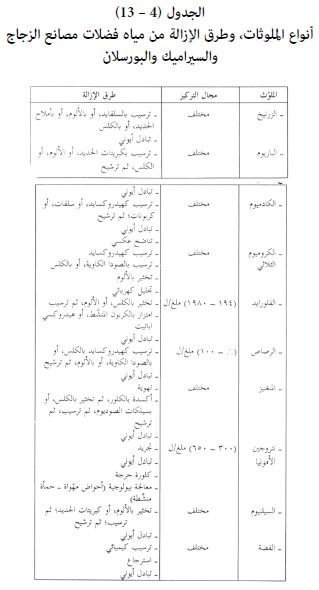 الجدول (4 – 13)
أنواع الملوثات، وطرق الإزالة من مياه فضلات مصانع الزجاج
والسيراميك والبورسلان
الملوّث مجال التركيز طرق الإزالة
ـ الزرنيخ مختلف ـ ترسيب بالسلفايد، أو بالألوم، أو بأملاح
الحديد، أو بالكلس
ـ تبادل أيوني
ـ الباريوم مختلف ـ ترسيب بكبريتات الحديد، أو الألوم، أو
الكلس، ثم ترشيح
ـ تبادل أيوني
ـ الكادميوم مختلف ـ ترسيب كهيدروكسايد، أو سلفات، أو
كربونات؛ ثم ترشيح
ـ تبادل أيوني
ـ تناضح عكسي
ـ الكروميوم مختلف ـ ترسيب كهيدروكسايد
الثلاثي ـ ترسيب بالصودا الكاوية، أو بالكلس
ـ تخثير بالألوم
ـ تحليل كهربائي
ـ الفلورايد (١٩٤ – ١٩٨٠) ملغ/ل ـ تخثير بالكلس، أو الألوم، ثم ترسيب
ـ امتزاز بالكربون المنشّط، أو هيدروكسي
اباتيت
ـ تبادل أيوني
ـ الرصاص – ١٠٠) ملغ/ل ـ ترسيب كهيدروكسايد بالكلس، أو
بالصودا الكاوية، أو بالألوم، ثم ترشيح
ـ تبادل أيوني
ـ المنغنيز مختلف ـ تهوية
ـ أكسدة بالكلور، ثم تخثير بالكلس، أو
بسيلكات الصوديوم، ثم ترسيب، ثم
ترشيح
ـ تبادل أيوني
ـ نتروجين (٣٠٠ – ٦٥٠) ملغ/ل ـ تجريد
الأمونيا ـ تبادل أيوني
ـ كلورة حرجة
ـ معالجة بيولوجية (أحواض مهوّاة ـ حمأة
منشّطة)
ـ السيلنيوم مختلف ـ تخثير بالألوم، أو كبريتات الحديد؛ ثم
ترسيب؛ ثم ترشيح
ـ تبادل أيوني
ـ الفضة مختلف ـ ترسيب كيميائي
ـ استرجاع
ـ تبادل أيوني